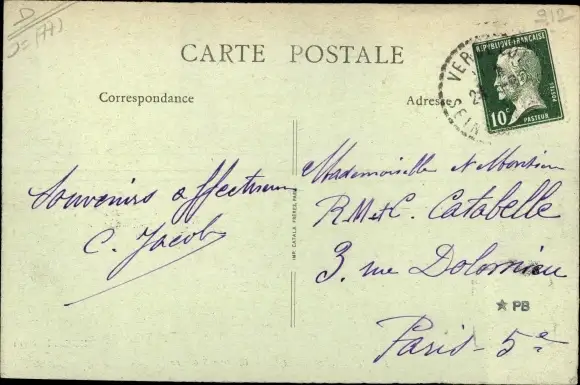 D
912
CARTE POSTALE
Correspondance
Adresse
RÉPUBLIQUE FRANÇAISE
POSTES
10c
PASTEUR
VER
SEIN
Souvenirs affectueux
C. Jacob
IMP. CATALA FRÈRES, PARIS
Mademoiselle et Monsieur
R M et C. Catabelle
3. rue Dolomieu
★ PB
Paris - 5e